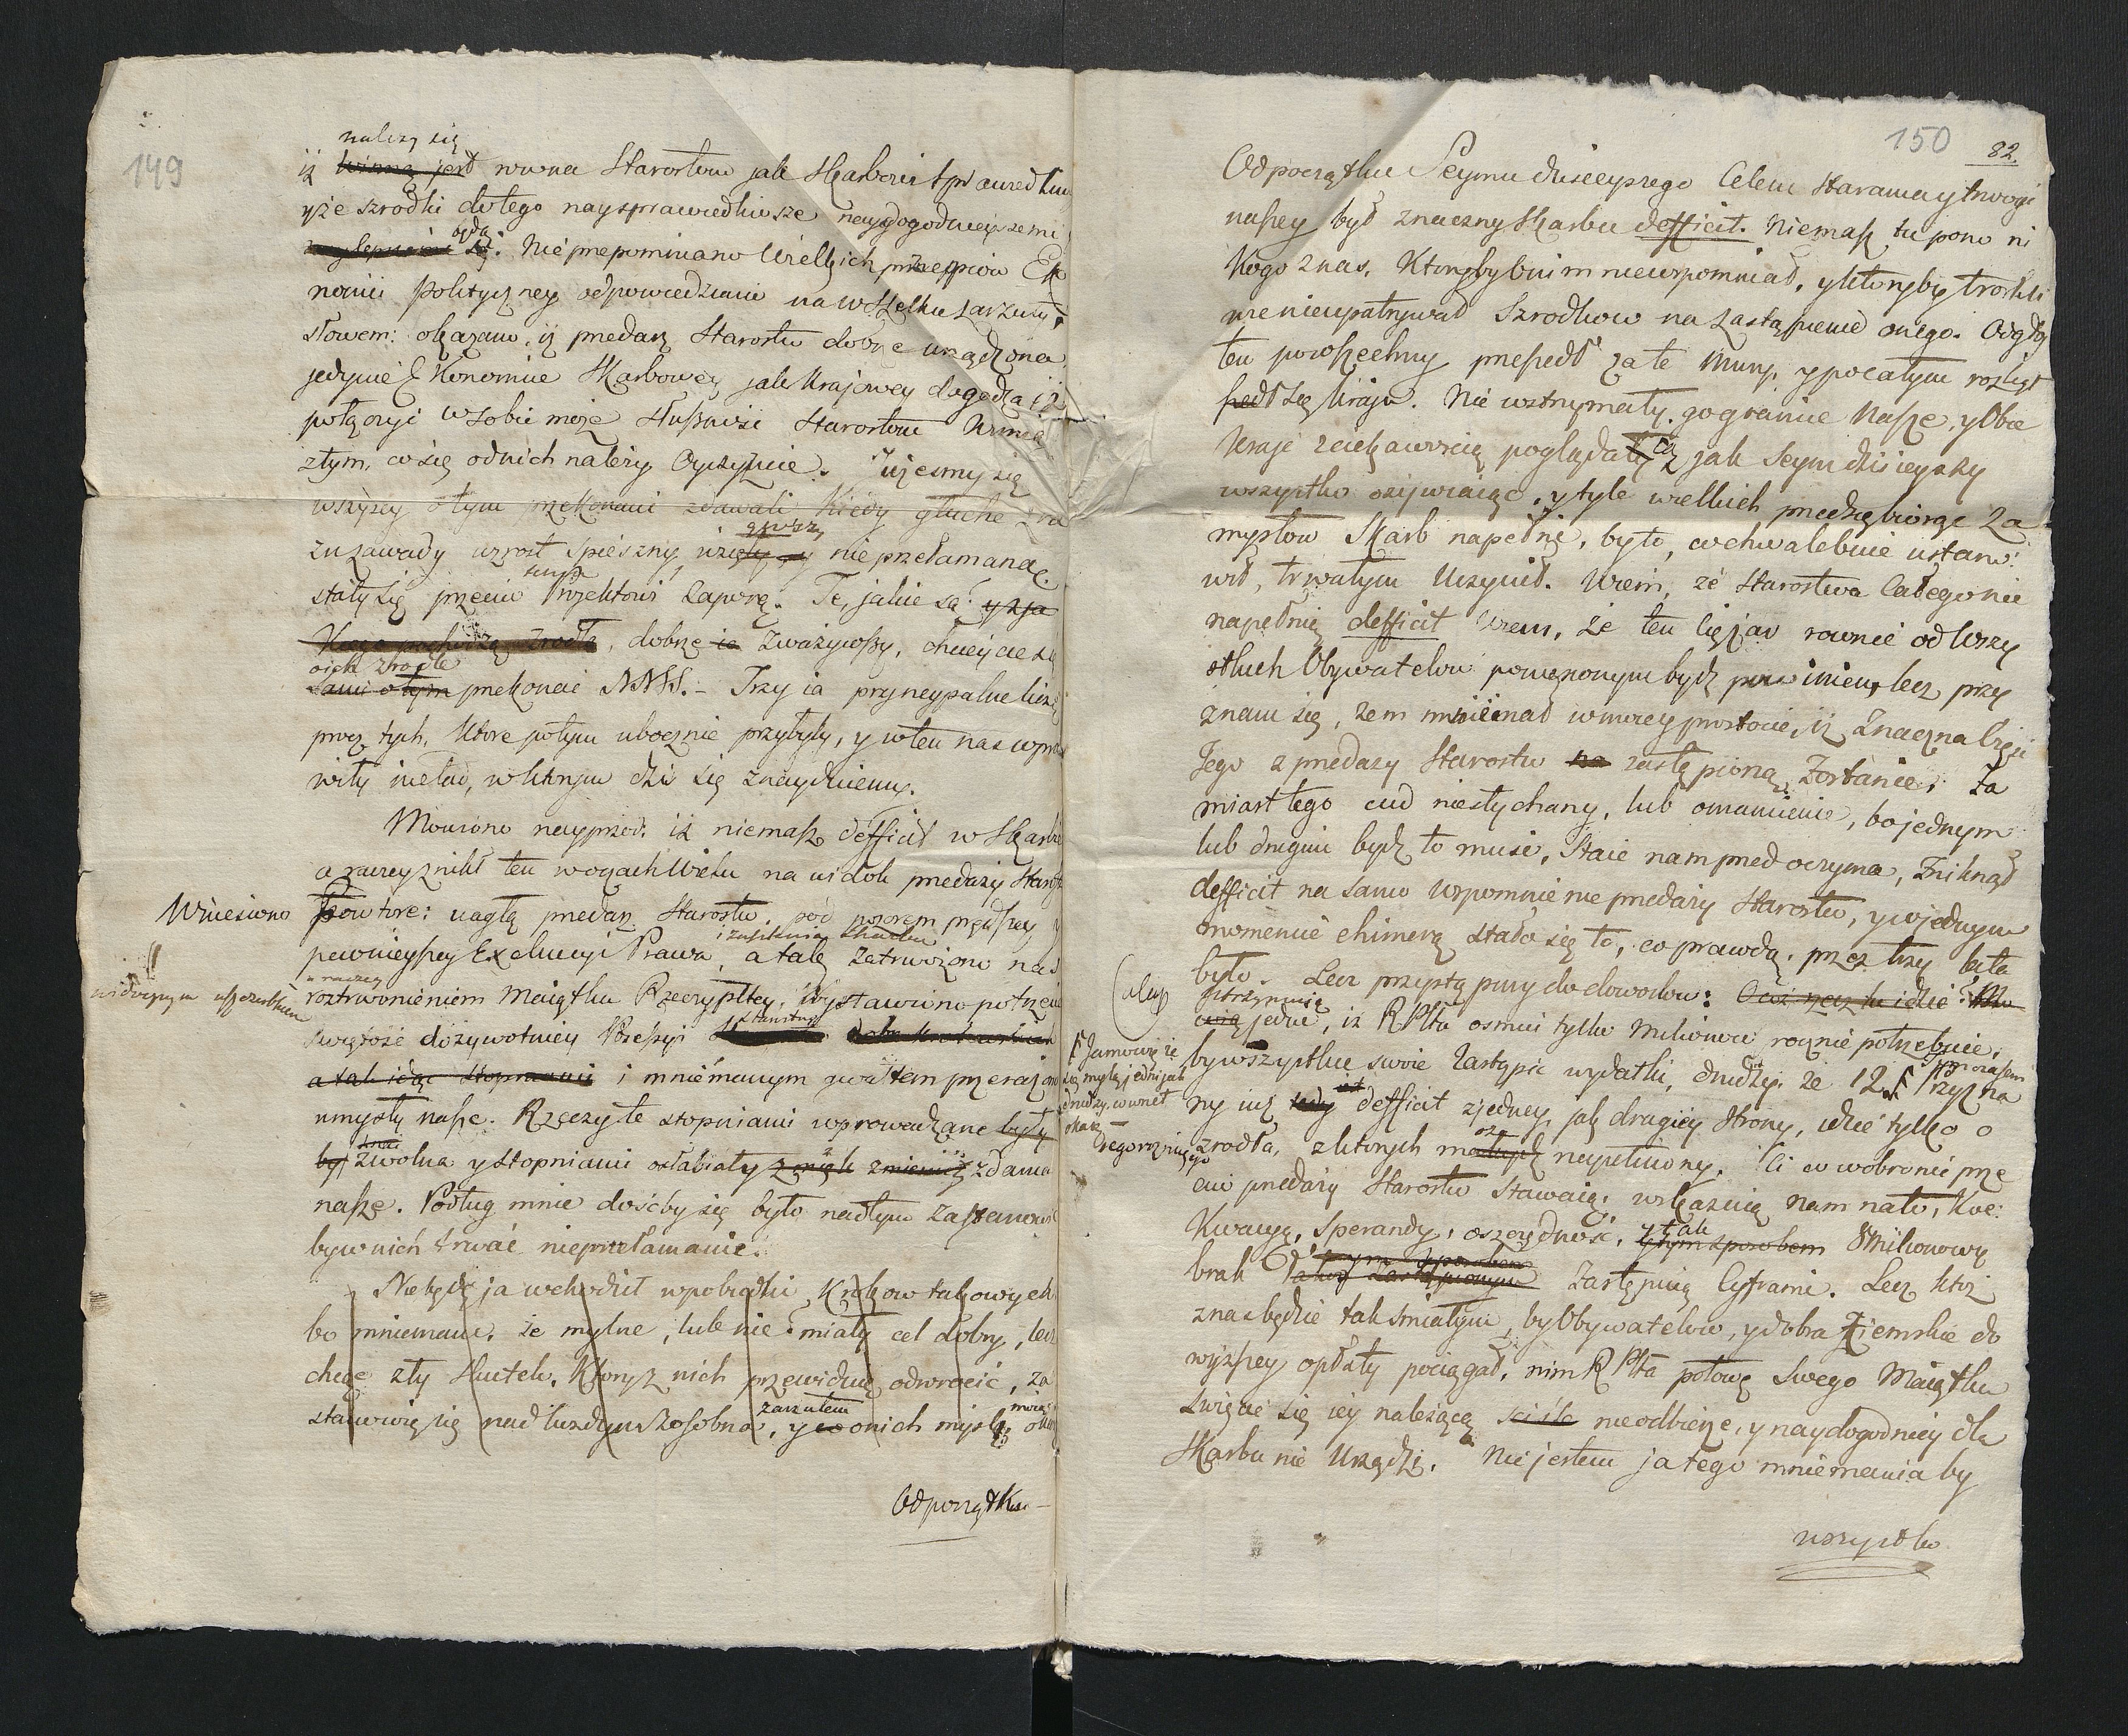 149
należy się
iż winna jest rowna Starostom jak Skarbowi sprawiedliwo
yże szrodki do tego naysprawiedliwsze naydogodnieysze mi
będą
się. Nieprzepominano wielkich przepisow Eko
nomii polityczney odpowiedziano na wszelkie zarzuty,
słowem: okazano, iż przedaż Starostw dobrze urządzona
jedynie Ekonomice Skarbowey jak Krajowey dogadza i iż
połączyć w sobie może słuszność Starostom
z tym, co się od nich należy Oyczyznie. Jużeśmy się
wszyscy o tym przekonani zdawali kiedy głuche zra
zu zawady wzrost spieszny, wzięły y nieprzełamaną
stały się przeciw Projektowi zaporą. Te, jakie są y z ja
kiego pochodzą zrodła, dobrze ie zważywszy, chcieycie się
o ich zrodle
sami o tym przekonać NNSS. – Trzy ia pryncypalne liczę
procz tych, ktore potym ubocznie przybyły, y w ten nas wpra
wiły nieład, w ktorym dziś się znaydziemy.
Mowiono nayprzod: iż niemasz defficit w Skarbie
a raczey znikł ten w oczach Wielu na widok przedaży Starostw
Wniesiono
Powtore: nagłą przedaż Starostw, pod pozorem prędszey y
i zasilenia Skarbu
pewnieyszey Exekucyi Prawa, a tak zatrwożono nas
a raczey
roztrwonieniem Maiątku Rzeczypltey. Wystawiono potrzecie
widocznym uszczerbkiem
świętość dożywotniey Possessyi Starostw
a tak idąc stopniami i mniemanym gwałtem przerażono
umysły nasze. Rzeczy te stopniami wprowadzane były
by zwolna y stopniami osłabiały z nich zmienić zdania
nasze. Podług mnie dość by się było nad tym zastanowić
by w nich trwać nieprzełamanie.
Nie będę ja wchodził w pobudki krokow takowych
bo mniemam, że mylne, lub nie miały cel dobry, lecz
chcąc zły skutek, ktory z nich przewiduię odwrocić, za
zarzutem
stanowię się nad każdym zosobna, y co o nich myślę,
Odpoczątku –

150
82.
Od początku Seymu dzisieyszego Celem starania y trwogi
naszey był znaczny Skarbu defficit. Niemasz tu pono ni
kogo z nas, ktoryby o nim niewspomniał, y ktoryby troskli
wie nieupatrywał Szrodkow na zastąpienie onego. Odgłos
ten powszechny przeszedł za te mury, y po całym rozległ
szedł się kraju. Nie wstrzymały go granice Nasze, y Obce
kraje z ciekawością poglądały jak Seym dzisieyszy
wszystko ożywiaiąc, y tyle wielkich przedsiębiorąc za
mysłow Skarb napełni, by to, co chwalebnie ustano:
wił, trwałym uczynił. Wiem, że Starostwa Całego nie
napełnią defficit wiem, że ten ciężar rownie od wszy
stkich Obywatelow ponoszonym bydź powinien, lecz przy
znam się, żem mniemał w moiey prostocie, iż znaczna część
Jego z przedaży Starostw na zastąpioną Zostanie; Za
miast tego cud niesłychany, lub omamienie, bo jednym
lub drugim bydź to musi, Staie nam przed oczyma, Zniknął
defficit na samo wspomnienie przedaży Starostw, y w jednym
momencie chimerą stało się to, co prawdą, przez trzy lata
było. Lecz przystąpmy do dowodow: Otoż rzecz tu idzie:
utrzymuią
jedni, iż RPlta osmiu tylko Milionow rocznie potrzebuie,
by wszystkie swoie Zastąpić wydatki, drudzy że 12. Przyzna
ny iuż tedy jest defficit z jedney, jak drugiey strony, idzie tylko o
zrodła, z ktorych może bydź napełniony. Ci co w obronie prze
ciw przedaży Starostw stawaią, wskazuią nam na to, Kwe:
Kwarcę, Sperandy, oszczędność, y tak y tym sposobem 8 Milionowy
brak Zastępuią Cyframi. Lecz ktoż
z nas będzie tak smiałym, by Obywatelow, y dobra Ziemskie do
wyższey opłaty pociągał, nim RPlta połowę swego Maiątku
święcie się iey należącą scisle nieodbierze, y naydogodniey dla
Skarbu nie urządzi. Nie jestem ja tego mniemania by
wszystko